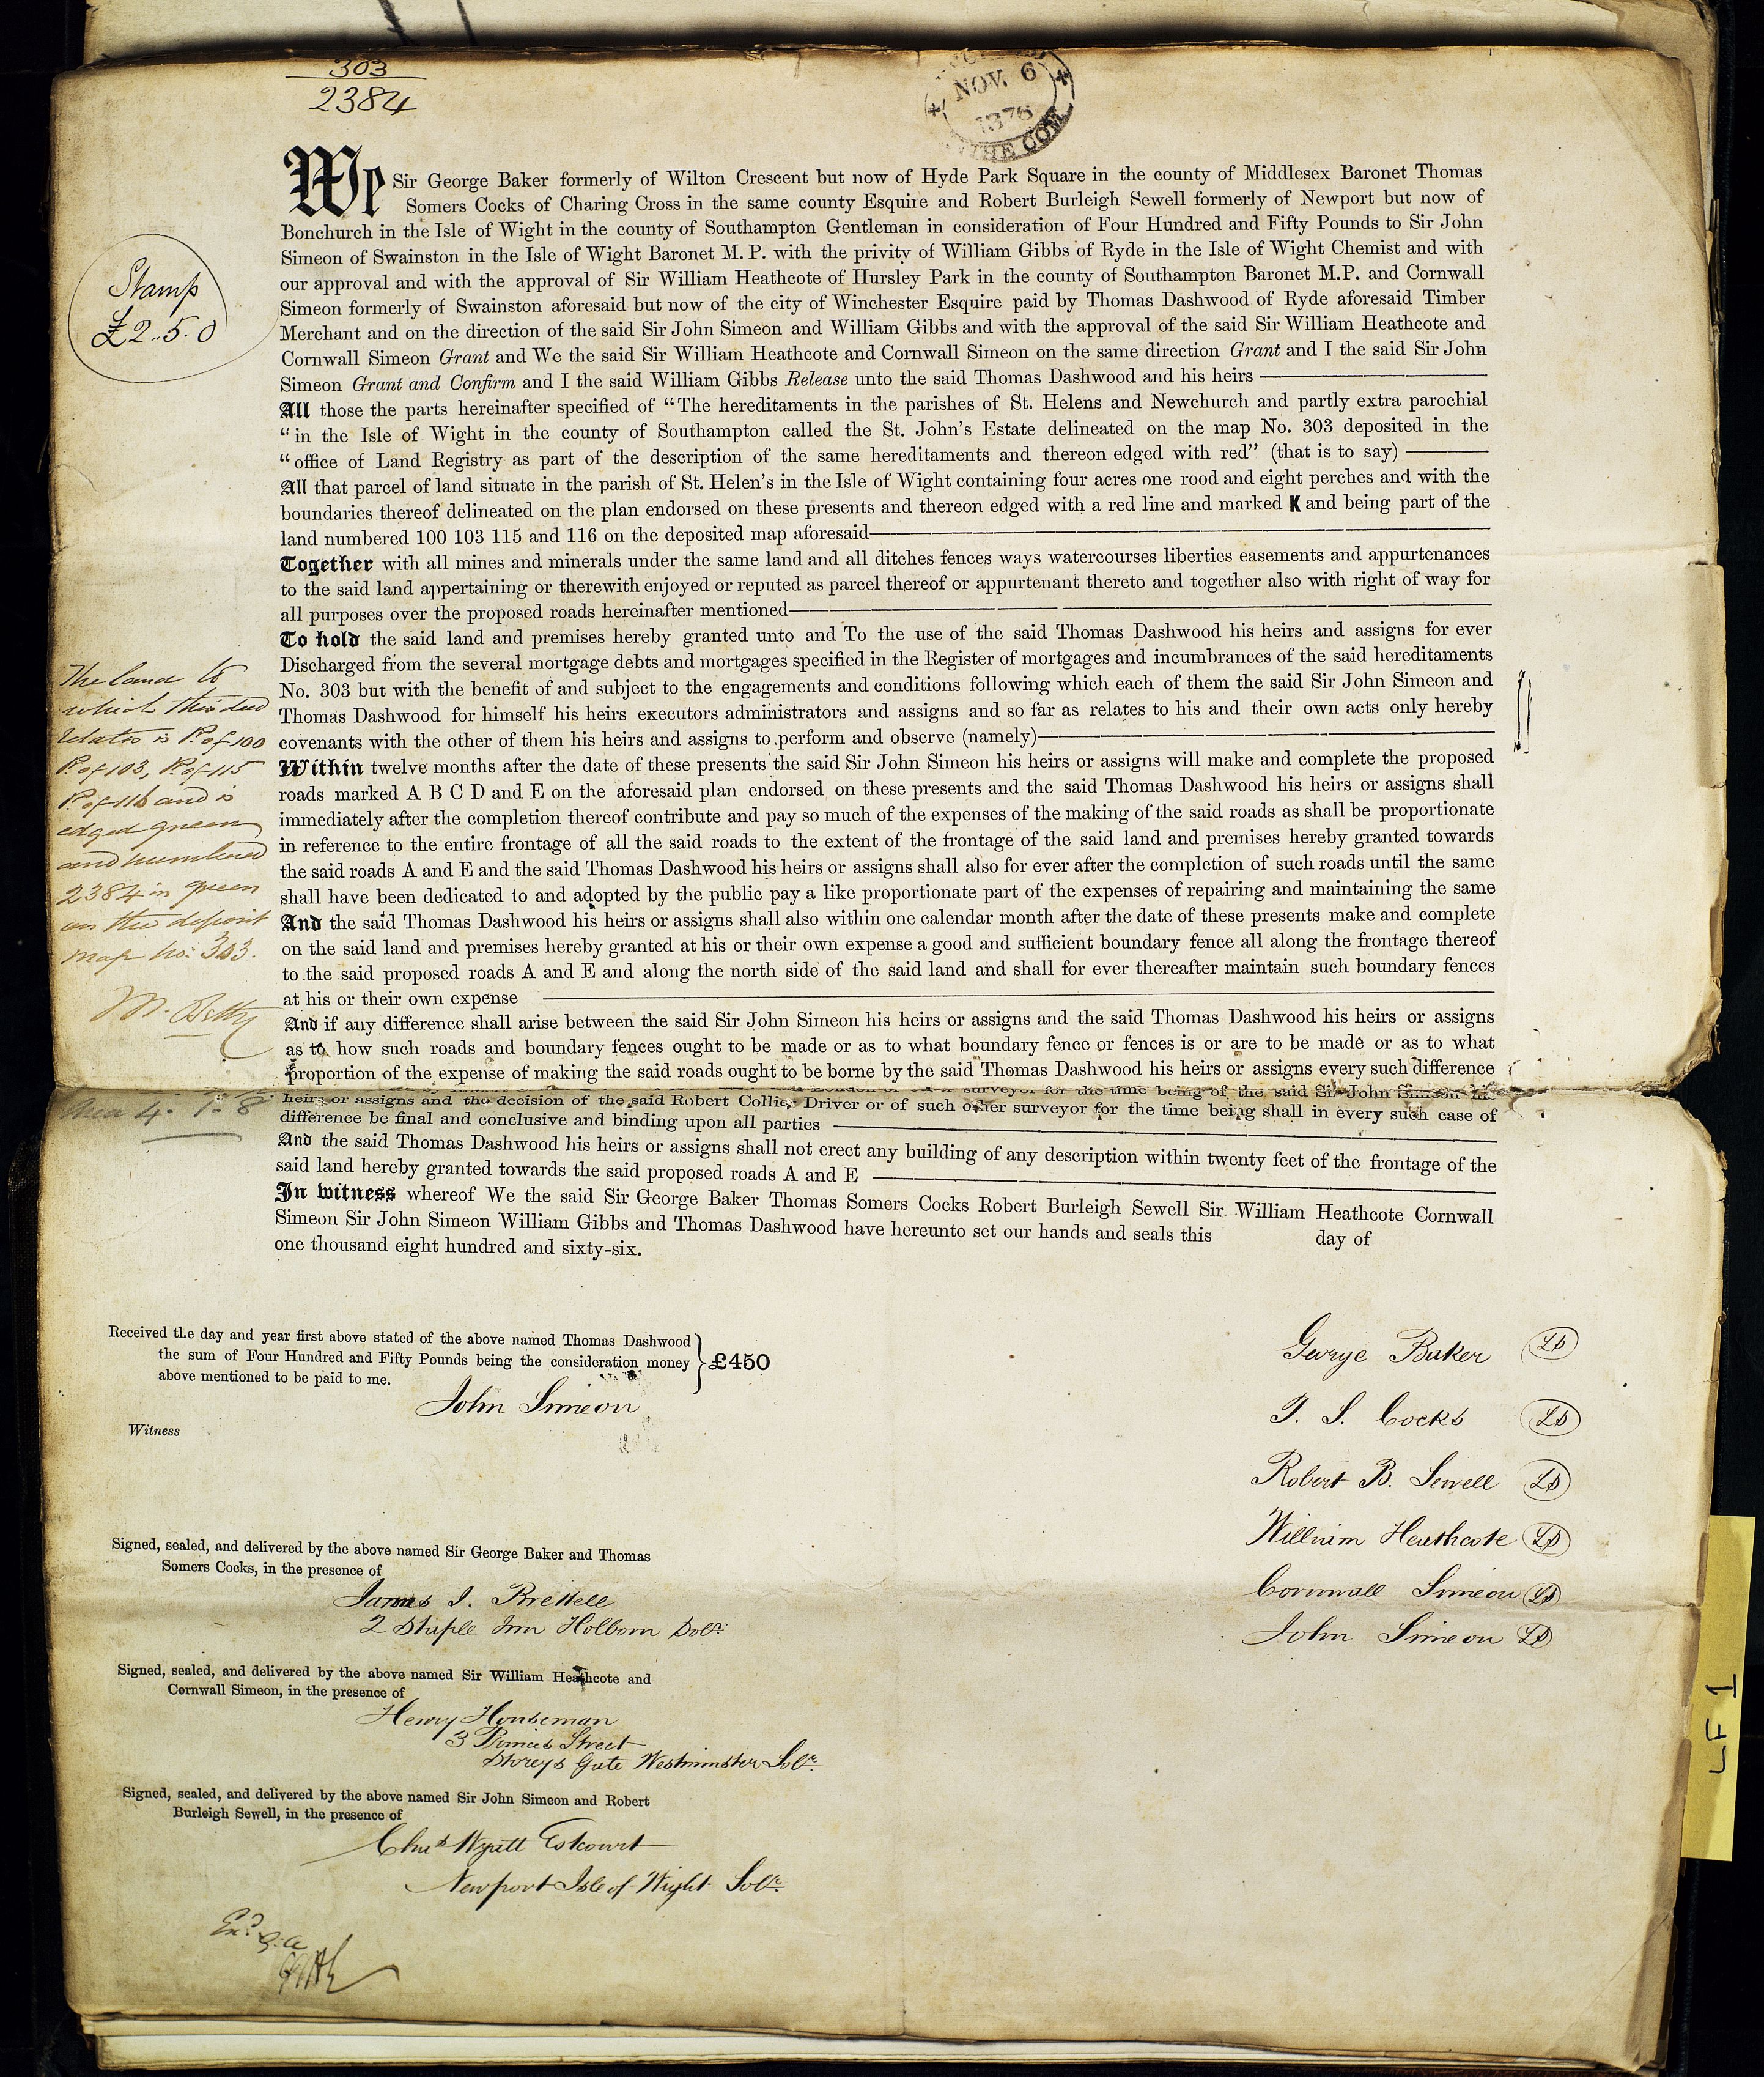 303
2384
NOV. 6
1876
THE COM
We Sir George Baker formerly of Wilton Crescent but now of Hyde Park Square in the county of Middlesex Baronet Thomas
Somers Cocks of Charing Cross in the same county Esquire and Robert Burleigh Sewell formerly of Newport but now of
Bonchurch in the Isle of Wight in the county of Southampton Gentleman in consideration of Four Hundred and Fifty Pounds to Sir John
Simeon of Swainston in the Isle of Wight Baronet M. P. with the privity of William Gibbs of Ryde in the Isle of Wight Chemist and with
our approval and with the approval of Sir William Heathcote of Hursley Park in the county of Southampton Baronet M.P. and Cornwall
Simeon formerly of Swainston aforesaid but now of the city of Winchester Esquire paid by Thomas Dashwood of Ryde aforesaid Timber
Merchant and on the direction of the said Sir John Simeon and William Gibbs and with the approval of the said Sir William Heathcote and
Cornwall Simeon Grant and We the said Sir William Heathcote and Cornwall Simeon on the same direction Grant and I the said Sir John
Simeon Grant and Confirm and I the said William Gibbs Release unto the said Thomas Dashwood and his heirs
Stamp
£2..5.0
All those the parts hereinafter specified of "The hereditaments in the parishes of St. Helens and Newchurch and partly extra parochial
"in the Isle of Wight in the county of Southampton called the St. John's Estate delineated on the map No. 303 deposited in the
"office of Land Registry as part of the description of the same hereditaments and thereon edged with red" (that is to say)
All that parcel of land situate in the parish of St. Helen's in the Isle of Wight containing four acres one rood and eight perches and with the
boundaries thereof delineated on the plan endorsed on these presents and thereon edged with a red line and marked K and being part of the
land numbered 100 103 115 and 116 on the deposited map aforesaid
Together with all mines and minerals under the same land and all ditches fences ways watercourses liberties easements and appurtenances
to the said land appertaining or therewith enjoyed or reputed as parcel thereof or appurtenant thereto and together also with right of way for
all purposes over the proposed roads hereinafter mentioned
To hold the said land and premises hereby granted unto and To the use of the said Thomas Dashwood his heirs and assigns for ever
Discharged from the several mortgage debts and mortgages specified in the Register of mortgages and incumbrances of the said hereditaments
No. 303 but with the benefit of and subject to the engagements and conditions following which each of them the said Sir John Simeon and
Thomas Dashwood for himself his heirs executors administrators and assigns and so far as relates to his and their own acts only hereby
covenants with the other of them his heirs and assigns to perform and observe (namely)
Within twelve months after the date of these presents the said Sir John Simeon his heirs or assigns will make and complete the proposed
roads marked A B C D and E on the aforesaid plan endorsed on these presents and the said Thomas Dashwood his heirs or assigns shall
immediately after the completion thereof contribute and pay so much of the expenses of the making of the said roads as shall be proportionate
in reference to the entire frontage of all the said roads to the extent of the frontage of the said land and premises hereby granted towards
the said roads A and E and the said Thomas Dashwood his heirs or assigns shall also for ever after the completion of such roads until the same
shall have been dedicated to and adopted by the public pay a like proportionate part of the expenses of repairing and maintaining the same
And the said Thomas Dashwood his heirs or assigns shall also within one calendar month after the date of these presents make and complete
on the said land and premises hereby granted at his or their own expense a good and sufficient boundary fence all along the frontage thereof
to the said proposed roads A and E and along the north side of the said land and shall for ever thereafter maintain such boundary fences
at his or their own expense
And if any difference shall arise between the said Sir John Simeon his heirs or assigns and the said Thomas Dashwood his heirs or assigns
as to how such roads and boundary fences ought to be made or as to what boundary fence or fences is or are to be made or as to what
proportion of the expense of making the said roads ought to be borne by the said Thomas Dashwood his heirs or assigns every such difference
surveyor for the time being of the said Sir John Simeon his
heirs or assigns and the decision of the said Robert Collier Driver or of such other surveyor for the time being shall in every such case of
difference be final and conclusive and binding upon all parties
And the said Thomas Dashwood his heirs or assigns shall not erect any building of any description within twenty feet of the frontage of the
said land hereby granted towards the said proposed roads A and E
In witness whereof We the said Sir George Baker Thomas Somers Cocks Robert Burleigh Sewell Sir William Heathcote Cornwall
Simeon Sir John Simeon William Gibbs and Thomas Dashwood have hereunto set our hands and seals this day of
one thousand eight hundred and sixty-six.
The land to
which this deed
relates is P. of 100
P. of 103, P. of 115
P. of 116 and is
edged green
and numbered
2384 in green
on the deposit
map No: 303.
Area 4. 1. 8
Received the day and year first above stated of the above named Thomas Dashwood
the sum of Four Hundred and Fifty Pounds being the consideration money
above mentioned to be paid to me.
£450
John Simeon
Witness
Signed, sealed, and delivered by the above named Sir George Baker and Thomas
Somers Cocks, in the presence of
James I. Brettell
2 Staple Inn Holborn Solr.
Signed, sealed, and delivered by the above named Sir William Heathcote and
Cornwall Simeon, in the presence of
Henry Houseman
3 Princes Street
Storeys Gate Westminster Solr.
Signed, sealed, and delivered by the above named Sir John Simeon and Robert
Burleigh Sewell, in the presence of
Chas Wyatt Estcourt
Newport Isle of Wight Solr.
George Baker LS
T. S. Cocks LS
Robert B. Sewell LS
William Heathcote LS
Cornwall Simeon LS
John Simeon LS
LF 1